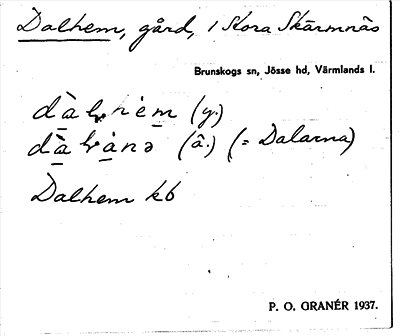 Dalhem, gård, i Stora Skärmnäs
Brunskogs sn, Jösse hd, Värmlands l.
(y.)
(ä.) (= Dalarna)
Dalhem kb
P. O. GRANÉR 1937.